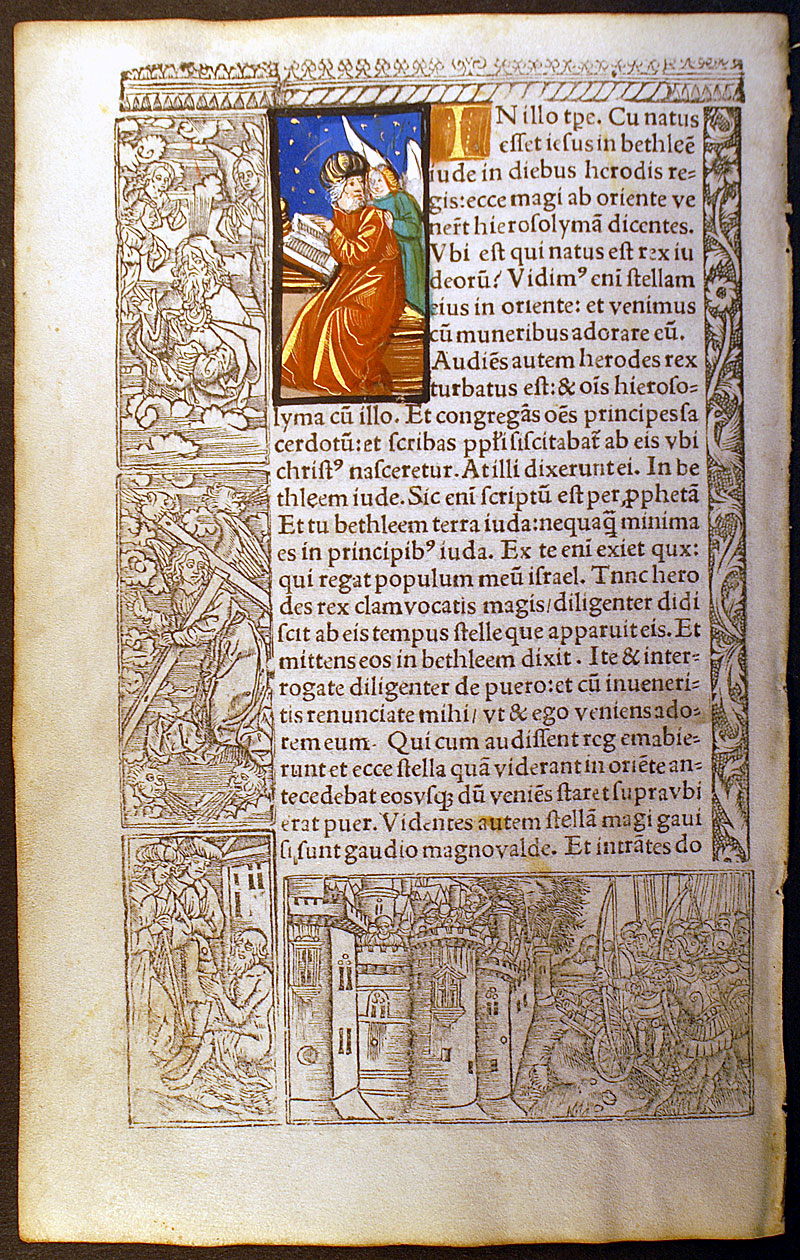 IN illo tp̄e. Cū natus
esset iesus in bethleē
iude in diebus herodis re=
gis: ecce magi ab oriente ve
ner̄t hierosolymā dicentes.
Vbi est qui natus est rex iu
deorū? Vidimꝰ eni stellam
eius in oriente: et venimus
cū muneribus adorare eū.
Audiēs autem herodes rex
turbatus est: & oīs hieroso=
lyma cū illo. Et congregās oēs principes sa
cerdotū: et scribas ppl'i sciscitabat̄ ab eis vbi
christꝰ nasceretur. At illi dixerunt ei. In be
thleem iude. Sic enī scriptū est per ꝓphetā
Et tu bethleem terra iuda: nequaq̄ minima
es in principibꝰ iuda. Ex te enī exiet qux:
qui regat populum meū israel. Tnnc hero
des rex clam vocatis magis/ diligenter didi
scit ab eis tempus stelle que apparuit eis. Et
mittens eos in bethleem dixit. Ite & inter=
rogate diligenter de puero: et cū inueneri=
tis renunciate mihi/ vt & ego veniens ado=
rem eum. Qui cum audissent regem abie=
runt et ecce stella quā viderant in oriēte an=
tecedebat eos vsq; dū veniēs staret supra vbi
erat puer. Videntes autem stellā magi gaui
si, sunt gaudio magno valde. Et intrātes do